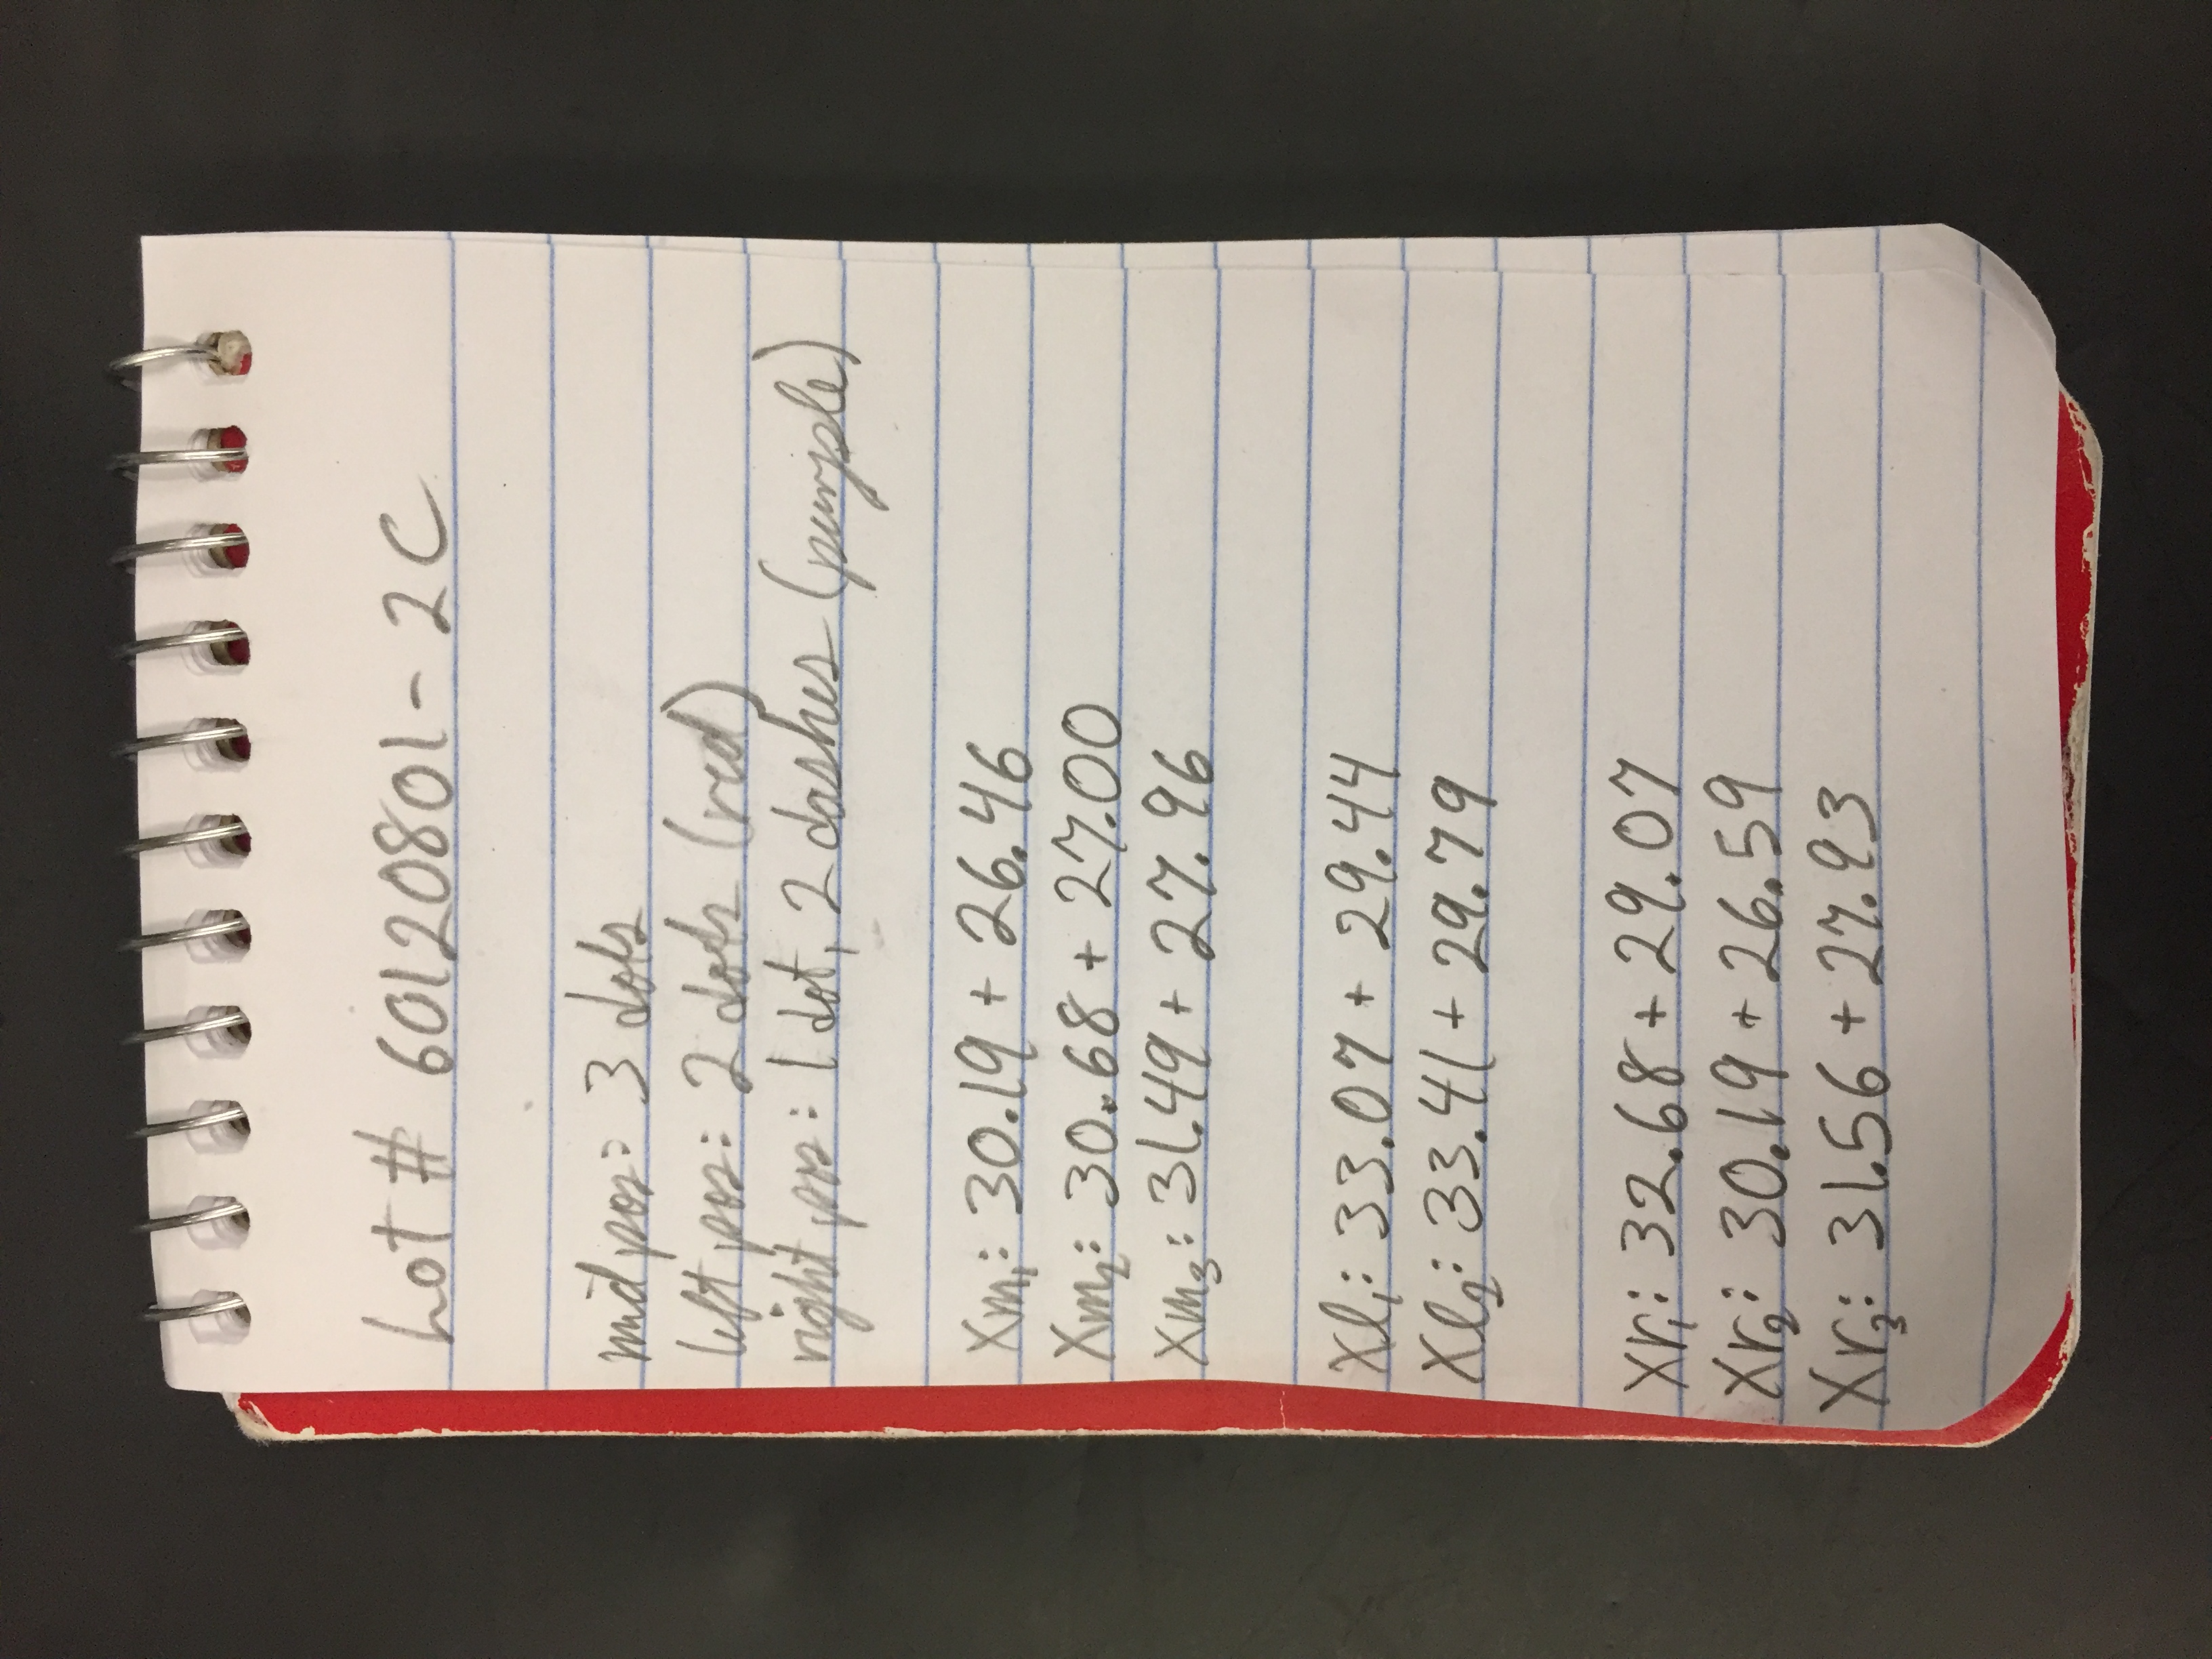 Lot # 60120801-2C
mid pos: 3 dots
left pos: 2 dots (red)
right pos: 1 dot, 2 dashes (purple)
Xm₁: 30.19 + 26.46
Xm₂: 30.68 + 27.00
Xm₃: 31.49 + 27.96
Xl₁: 33.07 + 29.44
Xl₂: 33.41 + 29.79
Xr₁: 32.68 + 29.07
Xr₂: 30.19 + 26.59
Xr₃: 31.56 + 27.93